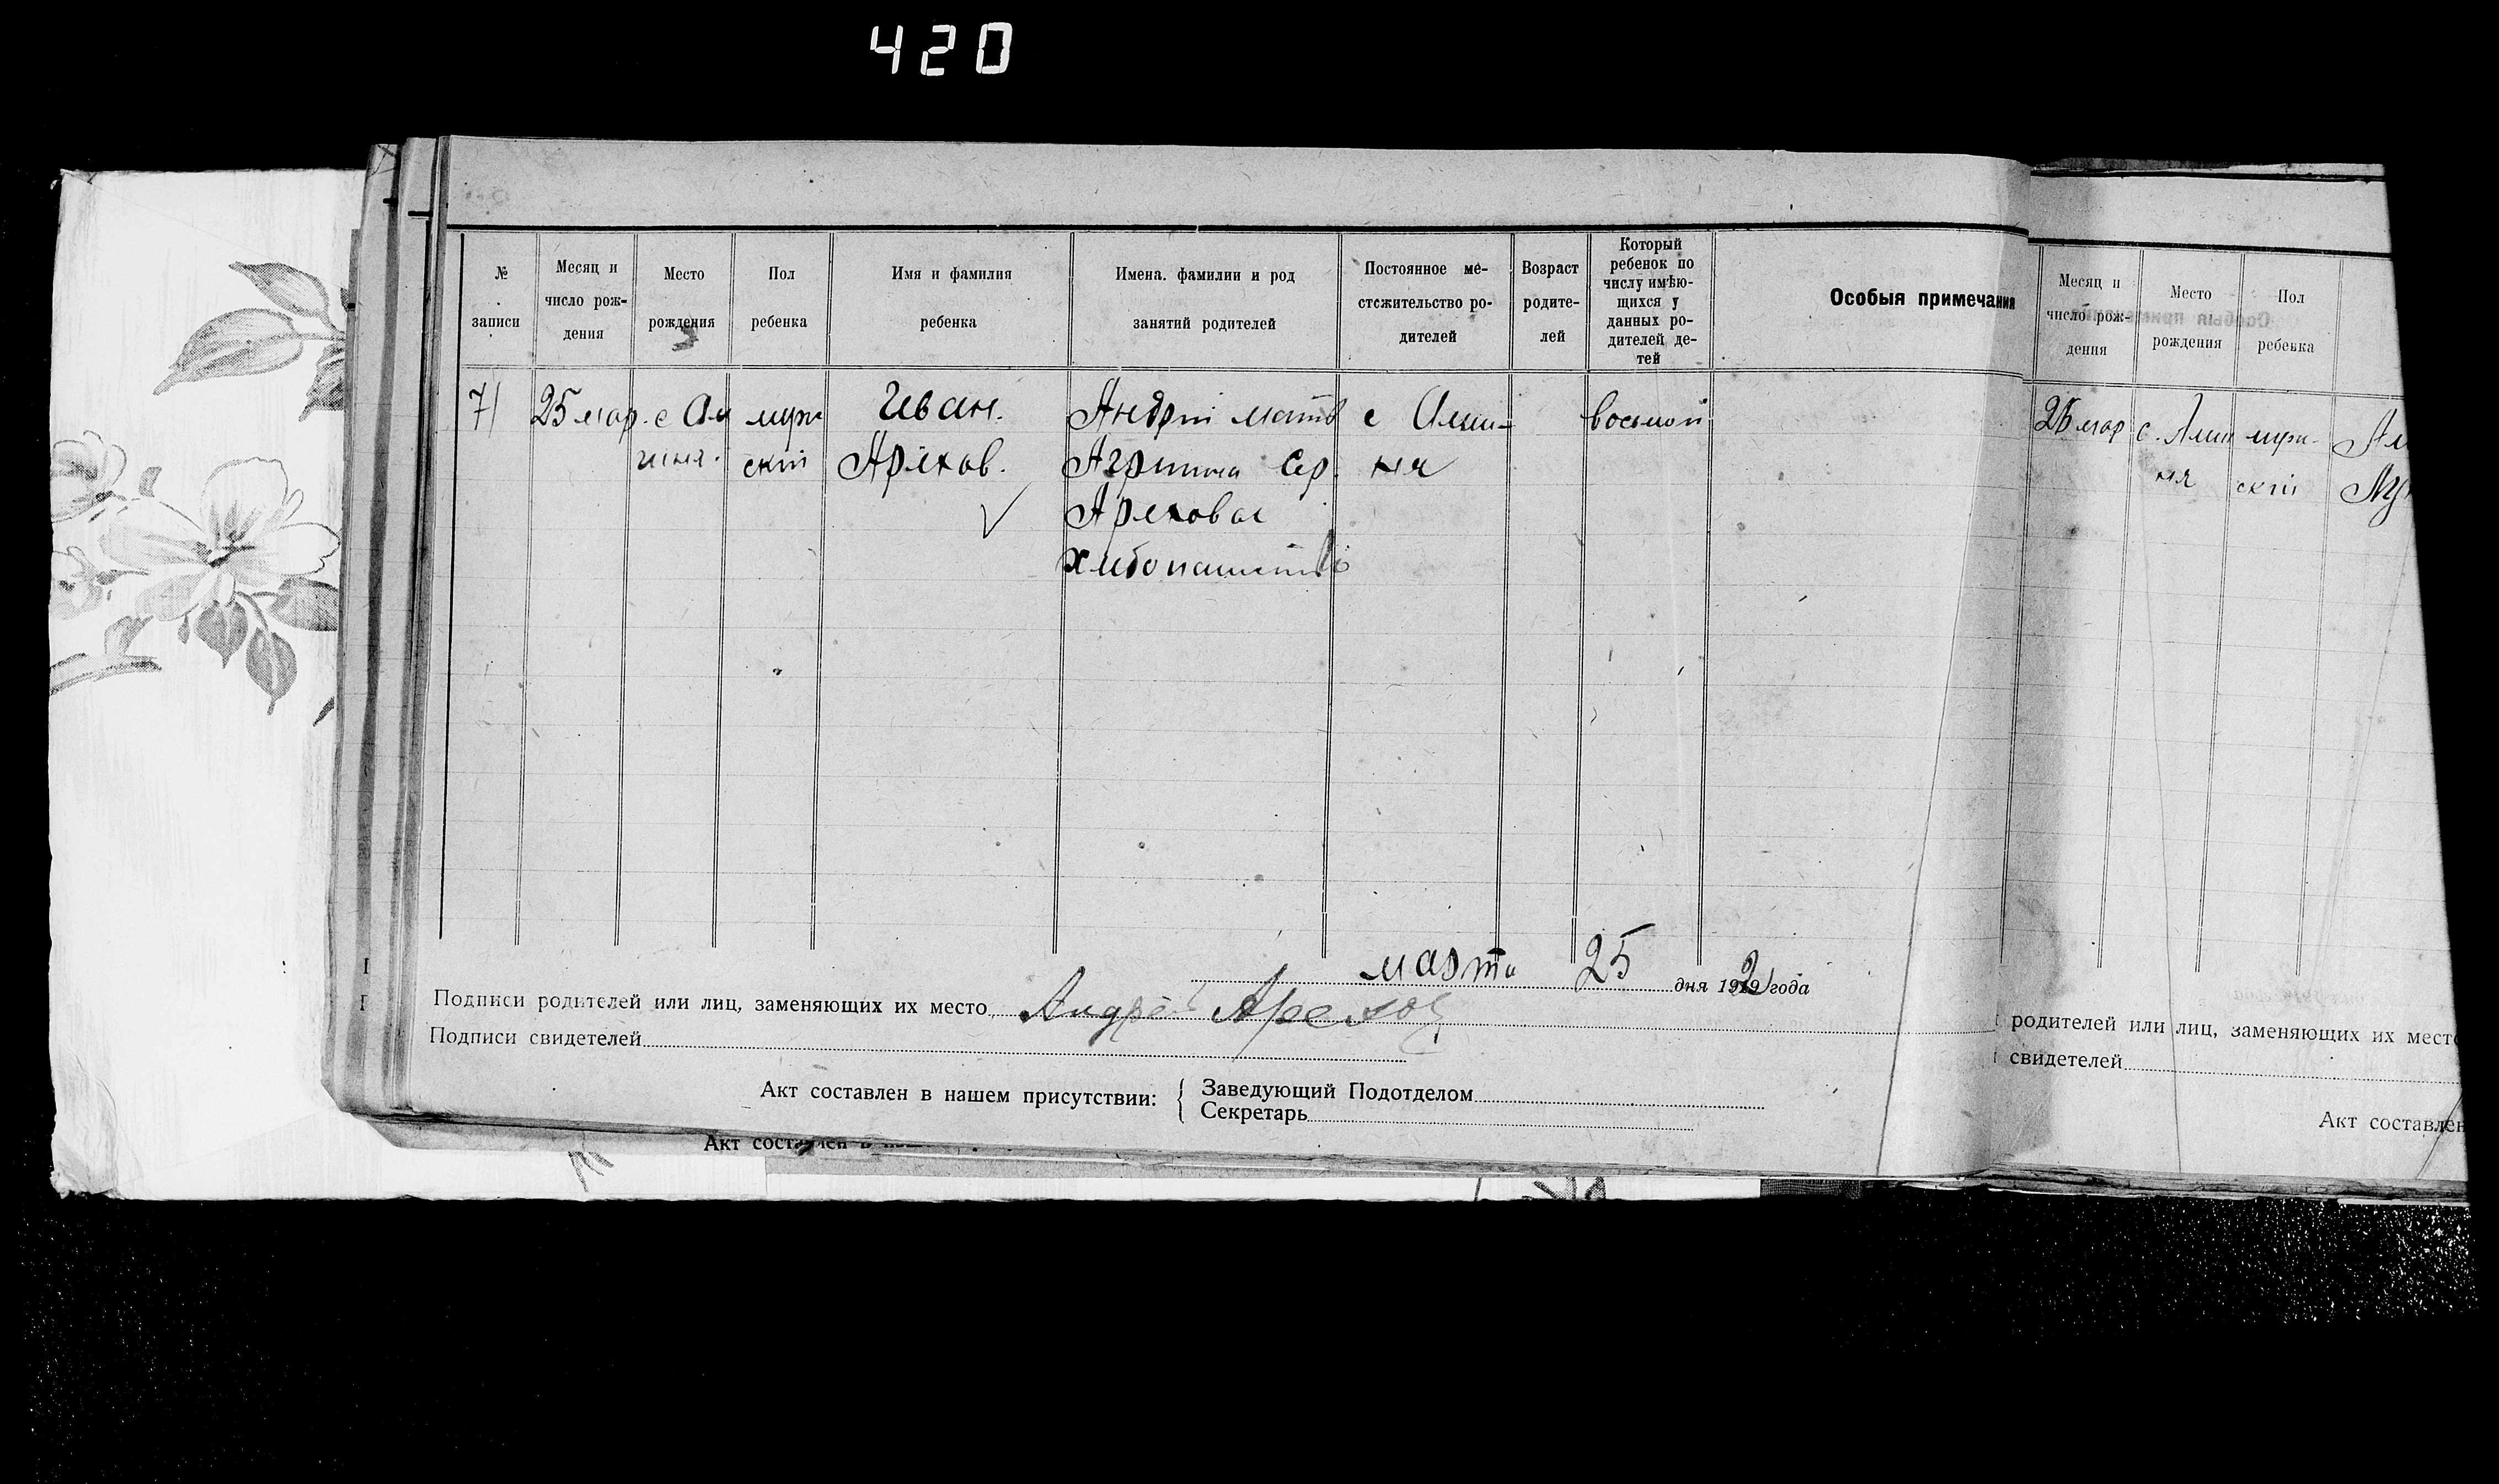 420
№ записи
Месяц и число рождения
Место рождения
Пол ребенка
Имя и фамилия ребенка
Имена. фамилии и род занятий родителей
Постоянное местожительство родителей
Возраст родителей
Который ребенок по числу имѣющихся у данных родителей детей
Особыя примечания
71 25 мар. с Ам муж Иван. Андрей матв с Амин- восьмой
иня. ский Арехов. Агрипина Сер. ня
Арехова
хлебопашество
марта 25 дня 192 года
Подписи родителей или лиц, заменяющих их место Андрей Арехов
Подписи свидетелей
Акт составлен в нашем присутствии: { Заведующий Подотделом
Секретарь
Акт составлен в
Месяц и число рождения
Место рождения
Пол ребенка
26 мар с. Амин муж-
ня ский
родителей или лиц, заменяющих их место
свидетелей
Акт составлен